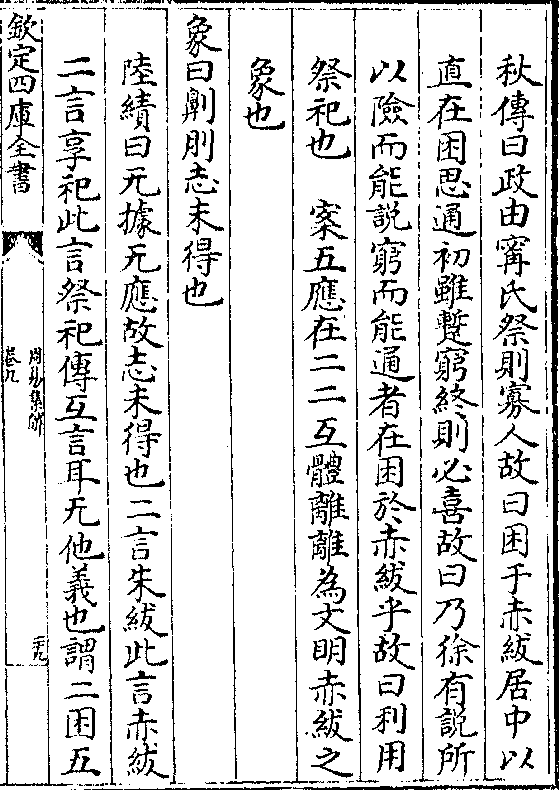 秋傳曰政由甯氏祭則寡人故曰困于赤紱居中以
直在困思通初雖蹔窮終則必喜故曰乃徐有說所
以險而能說窮而能通者在困於赤紱乎故曰利用
祭祀也　案五應在二二互體離離為文明赤紱之
象也
象曰劓刖志未得也
陸績曰无據无應故志未得也二言朱紱此言赤紱
二言享祀此言祭祀傳互言耳无他義也謂二困五
欽定四庫全書
周易集解
卷九
二十九